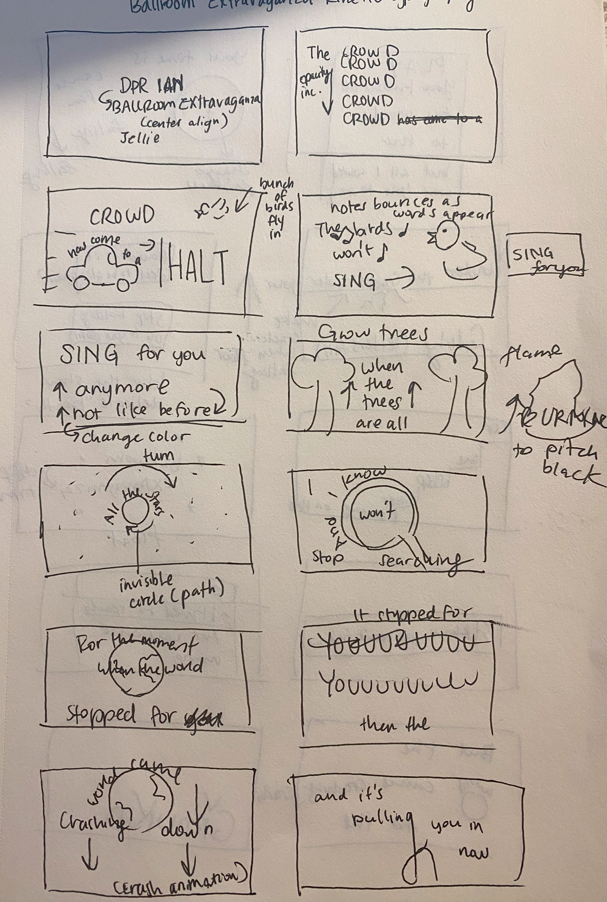 Ballroom Extravaganza Kinetic Typography
DPR IAN
BALLROOM EXtravaganza
(center align)
Jellie
The CROWD
opacity inc.
CROWD
CROWD
CROWD
CROWD has come to a
CROWD
now come to a
HALT
bunch of birds fly in
notes bounces as words appear
The birds
won't
SING
SING for you
SING for you
anymore
not like before
change color
Grow trees
when
the
trees
are all
flame
BURNING
to pitch black
turn
All the stars
invisible
circle (path)
And I know
won't
stop searching
For the moment
when the world
stopped for
It stopped for
YOUUUUUUU
YOUUUUUUU
then the
world came
Crashing down
(crash animation)
and it's
pulling
you in
now